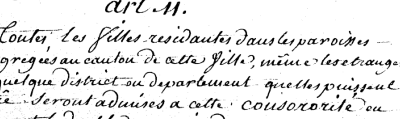 art. 11.
Toutes les filles residantes dans les paroisses
gregés au canton de cette Ville, même les etrange
quelque district ou departement quelles puissent
Seront admises a cette consororité ou